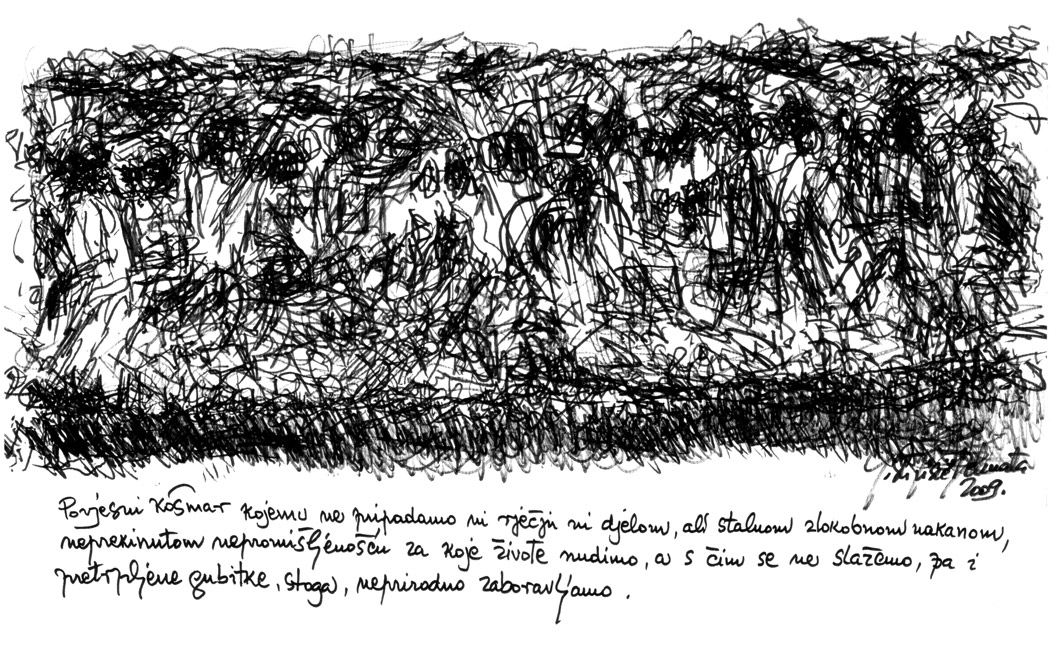 2009.
Povjesni košmar kojemu ne pripadamo ni rječju ni djelom, ali stalnom zlokobnom nakanom,
neprekinutom nepromišljenošću za koje živote nudimo, a s čim se ne slažemo, pa i
pretrpljene gubitke, stoga, neprirodno zaboravljamo.